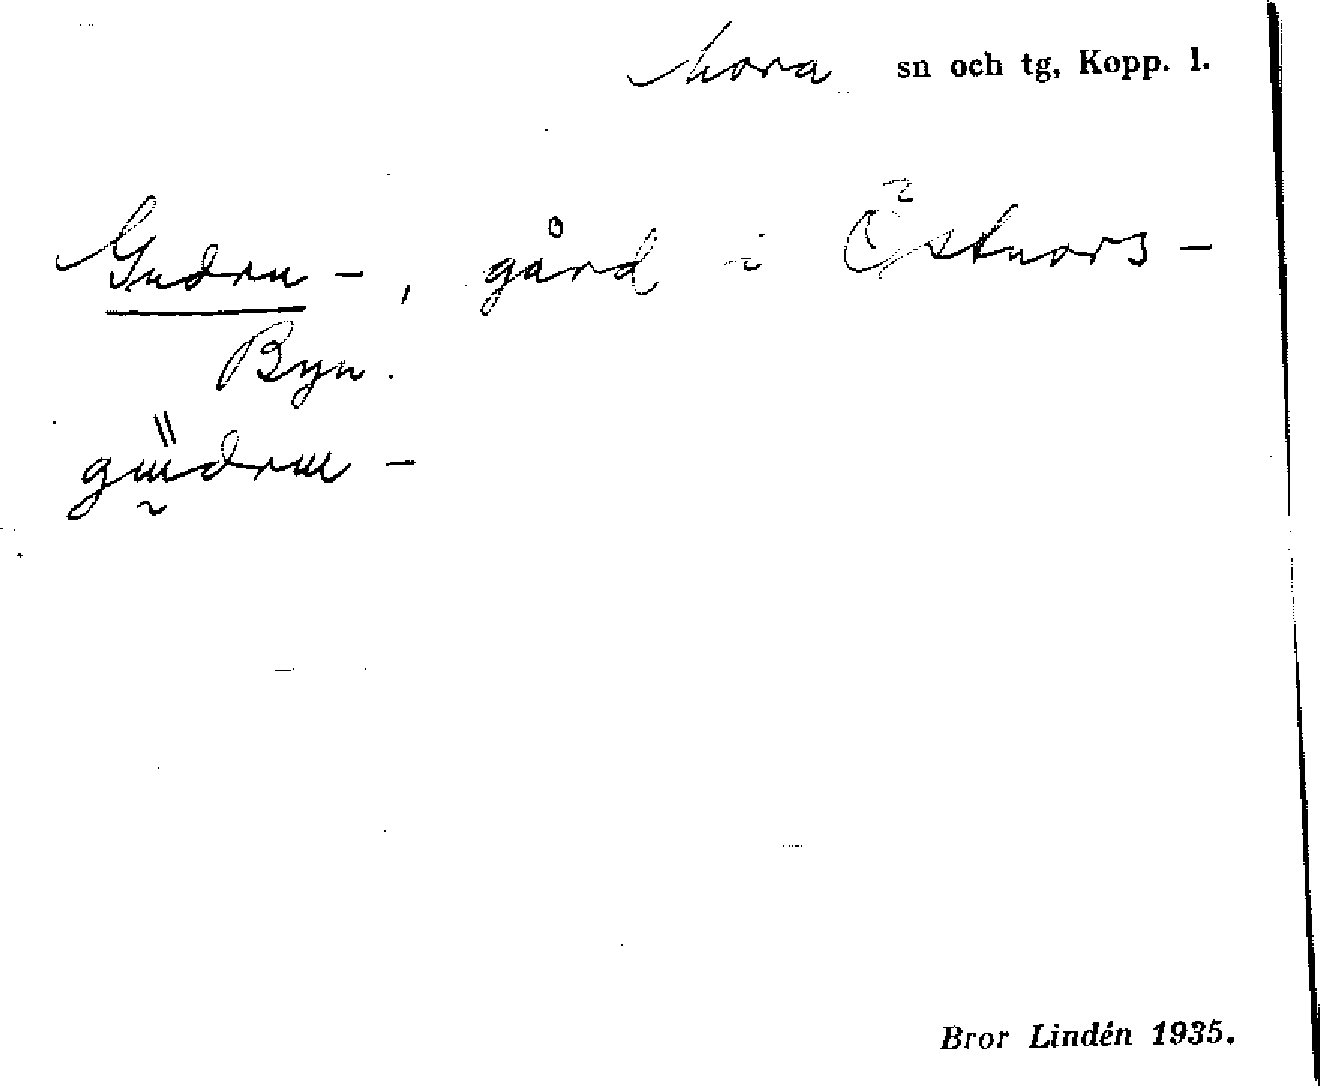 Mora sn och tg, Kopp. l.
Gudru-, gård i Östnors-
Byn.
gɯ̰̋drɯ-
Bror Lindén 1935.